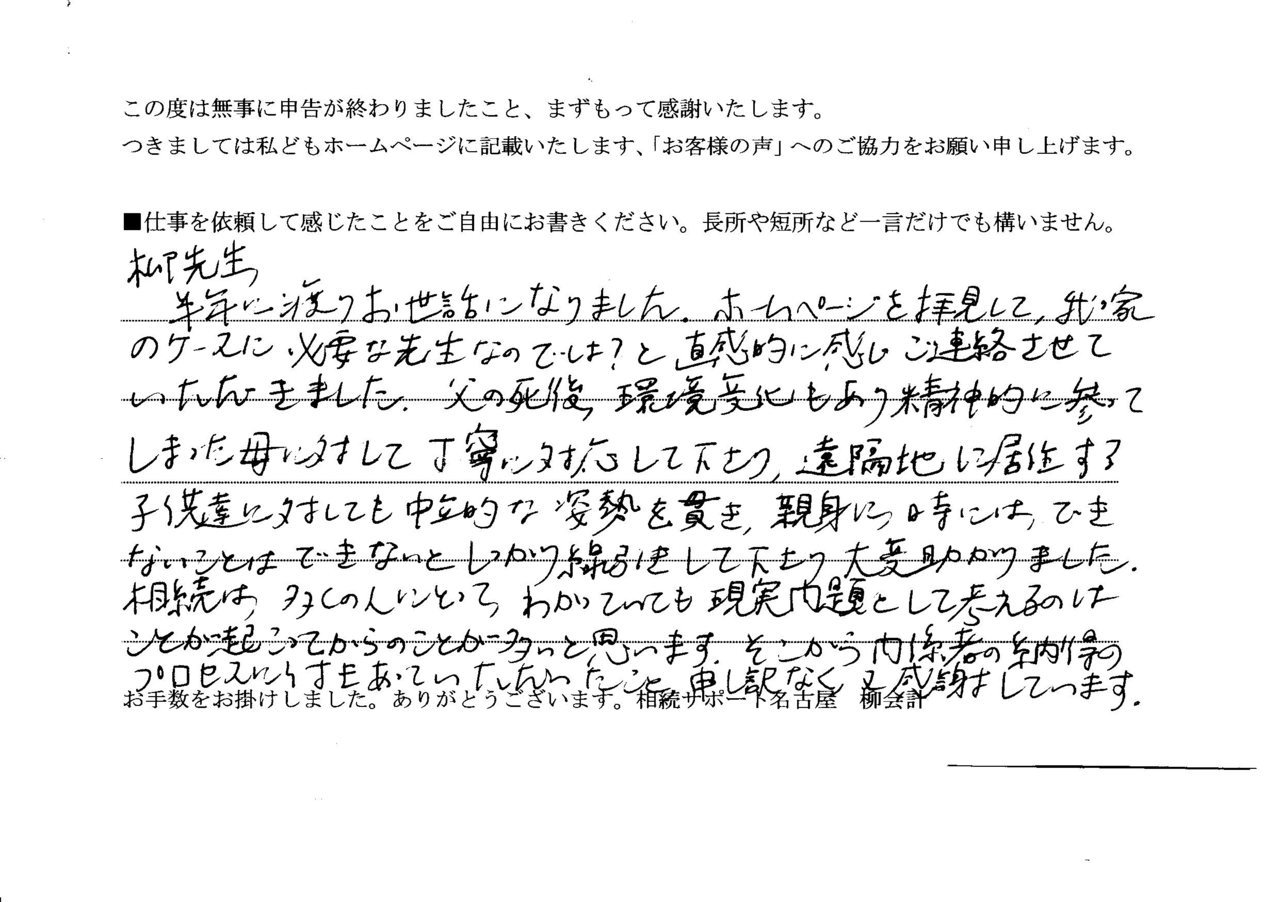 この度は無事に申告が終わりましたこと、まずもって感謝いたします。
つきましては私どもホームページに記載いたします、「お客様の声」へのご協力をお願い申し上げます。
■仕事を依頼して感じたことをご自由にお書きください。長所や短所など一言だけでも構いません。
柳先生
半年に渡りお世話になりました。ホームページを拝見して、我が家
のケースに必要な先生なのでは?と直感的に感じご連絡させて
いただきました。父の死後、環境変化もあり精神的に参って
しまった母に対して丁寧に対応して下さり、遠隔地に居住する
子供達に対しても中立的な姿勢を貫き、親身に、時には、でき
ないことはできないとしっかり線引きして下さり大変助かりました。
相続は、多くの人にとって、わかっていても現実問題として考えるのは
ことが起こってからのことが多いと思います。そこから関係者の納得の
プロセスにつき合っていただいたこと、申し訳なく又感謝しています。
お手数をお掛けしました。ありがとうございます。相続サポート名古屋 柳会計